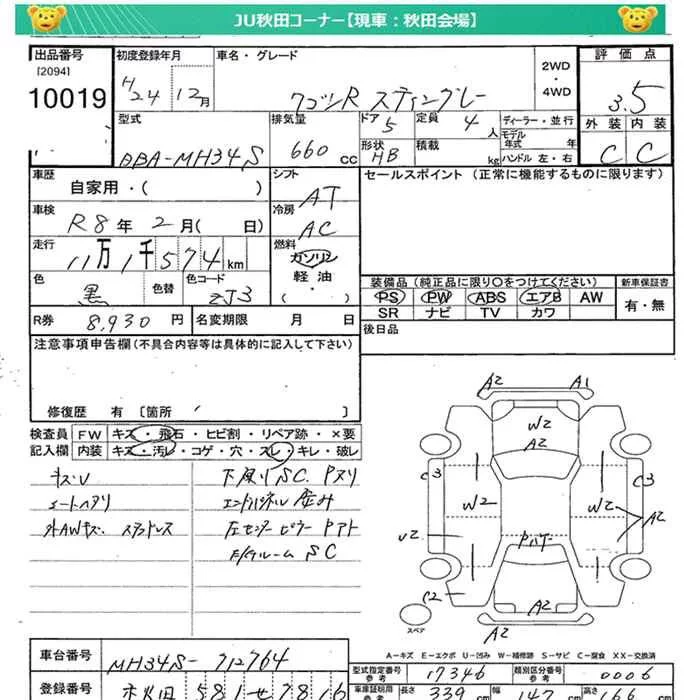 JU秋田コーナー【現車：秋田会場】
出品番号 初度登録年月 車名・グレード 2WD・4WD 評価点
[2094]
10019 H24 12月 ワゴンR スティングレー 3.5
型式 排気量 ドア 定員 ディーラー・並行 外装 内装
DBA-MH34S 660cc 5 4人 モデル年式 年 C C
形状 HB 積載 kg ハンドル 左・右
車歴 自家用・( ) シフト AT セールスポイント（正常に機能するものに限ります）
車検 R8年2月( 日) 冷房 AC
走行 11万1千574km 燃料 ガソリン 軽油・( )
色 黒 色替 色コード ZJ3
装備品（純正品に限り○をつけてください） 新車保証書
PS PW ABS エアB AW 有・無
SR ナビ TV カワ
R券 8,930円 名変期限 月 日 後日品
注意事項申告欄(不具合内容等は具体的に記入して下さい)
修復歴 有 [箇所 ]
検査員 FW キズ・飛石・ヒビ割・リペア跡・×要
記入欄 内装 キズ・汚レ・コゲ・穴・スレ・キレ・破レ
キズU 下廻りSC. Pヌリ
シートヘタリ エンドパネル歪み
外AWキズ. スタッドレス 左センターピラーPアト
E/gルームSC
A2 A1
W2
A2
C3 C3
W2 W2 A2
U2 Pハゲ
A2
C2 A2
スペア
A-キズ E-エクボ U-凹み W-補修跡 S-サビ C-腐食 XX-交換済
車台番号 MH34S-712764
型式指定番号 参考 17346 類別区分番号 参考 0006
登録番号 秋田 581 せ 7816
車庫証明用 参考 長さ 339 幅 147 高さ 166